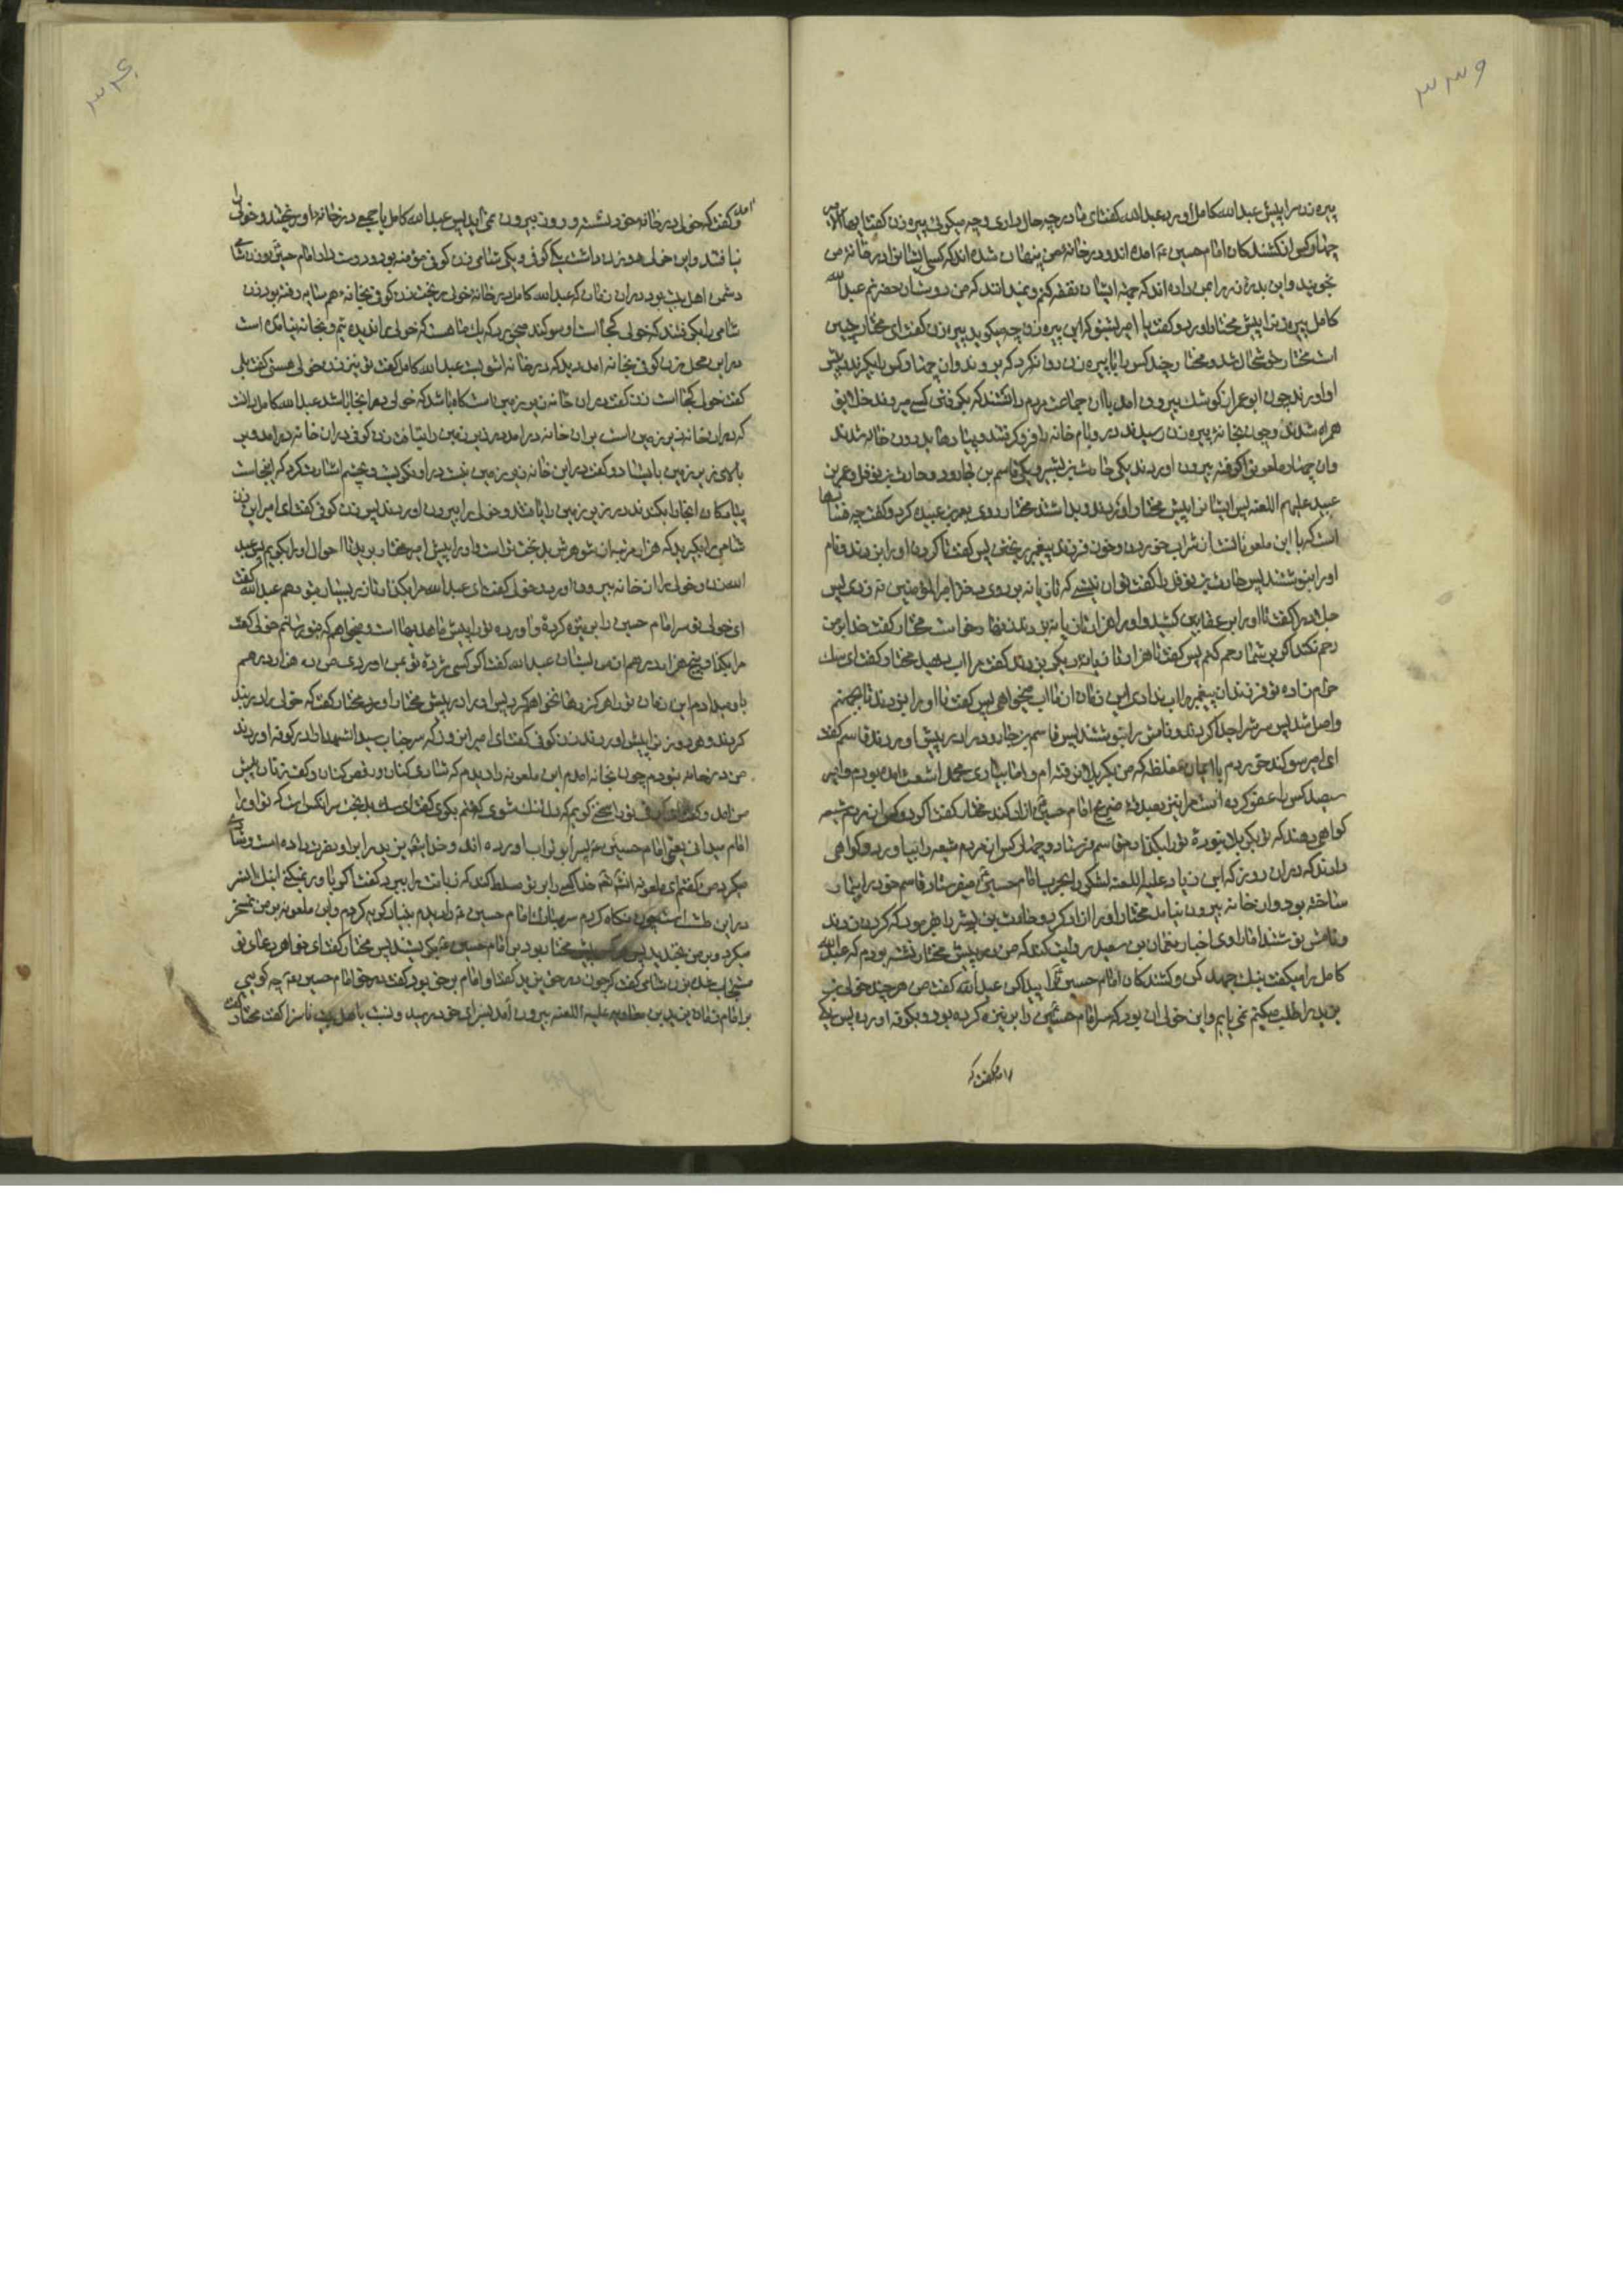 ۳۳۹
پیره زن را پیش عبدالله کامل آورد عبدالله گفت ای مادر چه حال داری و چه میگوئی پیره زن گفت
چهار کس از کشندکان امام حسین ع آمده اند و در خانه من پنهان شده اند که کسی ایشانرا در خانه من
نجوید و این بدره زر را بمن داده اند که جهة ایشان نفقه کنم و نمیدانند که من دوستان حضرتم عبدالله
کامل پیره زن را پیش مختار آورد و گفت یا امیر بشنو که این پیره زن چه میکوید پیره زن گفت ای مختار چنین
است مختار خوشحال شد و مختار چند کس را با پیره زن روانه کرد که بروند و آن چهار کس را بگیرند و پیش
او آورند چون ابو عمر از کوشک بیرون آمد با آن جماعت مردم دانستند که بکرفتن کسی میروند خلایق
همراه شدند و چون بخانه پیره زن رسیدند در و بام خانه را فرو کرفتند و پیادها بدرون خانه شدند
وان چهار ملعونرا کرفته بیرون آوردند یکی حارث بن بشیر و یکی قاسم بن جارود و حارث بن نوفل و عمر بن
عبید علیهم اللعنه پس ایشان را پیش مختار آوردند و بداشتند مختار روی بعمر بن عبیده کرد و گفت چه
است که با این ملعونان شراب خوردن و خون فرزند پیغمبر ریختی پس گفت تا کردن او را بزدند و نام
او را بنوشتند پس حارث بن نوفل را گفت تو آن نیستی که تازیانه بر روی دختر امیرالمؤمنین ع زدی پس
جلاد را گفت تا او را بر عقابین کشید و او را هزار تازیانه بزدند زنهار خواست مختار گفت خدا بر من
رحم نکند اکر بر شما رحم کنم پس گفت تا هزار تازیانه دیکر بزدند گفت مرا آب دهید مختار گفت ای سک
حرام زاده تو فرزندان پیغمبر را آب ندادی این زمان از ما آب میخواهی پس گفت تا او را بزدند تا بجهنم
واصل شد پس سرش را جدا کردند و نامش را بنوشتند پس قاسم بن جارود را در پیش آوردند قاسم گفت
ای امیر سوکند خوردم با ایمان مغلظه که من بکربلا نرفته ام و اما بیاری محمد اشعث آمده بودم و امیر
سیصد کس را عفو کرده است مرا نیز بصدقه ضریح امام حسین ع آزاد کند مختار گفت اکر دو کس از مردم شیعه
کواهی دهند که تو بکربلا نبودهٔ ترا بکذارم قاسم فرستاد و چهل کس از مردم شیعه را بیاورد و کواهی
دادند که در آن روز که ابن زیاد علیه اللعنه لشکر را بحرب امام حسین ع میفرستاد قاسم خود را بیمار
ساخته بود و از خانه بیرون نیامد مختار او را آزاد کرد و حارث بن بشیر را فرمود که کردن زدند
و نامش نوشتند اما راوی اخبار نعمان بن سعید روایت کند که من در پیش مختار نشسته بودم که عبدالله
کامل را میگفت نیک جهد کن و کشندکان امام حسین ع را پیدا کن عبدالله گفت من هر چند خولی بن
یزید را طلب میکنم نمی یابم و این خولی آن بود که سر امام حسین را بر نیزه کرده بود و بکوفه آورده پس یکی
آمد و گفت که
۳۴۰
آمد و گفت که خولی در خانه خود نشسته و روز بیرون نمی آید پس عبدالله کامل با جمعی در خانه او ریختند و خولی را
نیافتند و این خولی دو زن داشت یکی کوفی و یکی شامی زن کوفی مؤمنه بود و دوست دار امام حسین ع بود و زن شامی
دشمن اهل بیت بود در آن زمان که عبدالله کامل در خانه خولی ریخت زن کوفی بخانه همسایه رفته بود زن
شامی را بگرفتند که خولی کجا است او سوکند میخورد که یک ماه هست که خولی را ندیده ام و بخانه نیامده است
در این محل زن کوفی بخانه آمد دید که در خانه آشوبست عبدالله کامل گفت تو نیز زن خولی هستی گفت بلی
گفت خولی کجا است زن گفت در آن خانه زیر زمین است نکاه باشد که خولی در آنجا باشد عبدالله کامل دانست
که در آن خانه زیر زمین است بر آن خانه در آمد در زیر زمین را نیافت زن کوفی در آن خانه در آمد و بر
بالای زیر زمین بایستاد و گفت در این خانه زیر زمین نیست در او نگریست و بچشم اشارت کرد که اینجاست
پیادکان آنجا را بکندند در زیر زمین را یافتند و خولی را بیرون آوردند پس زن کوفی گفت ای امیر این زن
شامی را بگیرید که هزار مرتبه از شوهرش بدبخت تر است و او را پیش امیر مختار برید تا احوال او را بگویم پس عبد
الله زن و خولی را از آن خانه بیرون آورد و خولی گفت ای عبدالله مرا بکذار تا زر بسیار بتو دهم عبدالله گفت
ای خولی تو سر امام حسین را بر نیزه کردهٔ و آورده ترا پیش ما هدیها است میخواهم که بتو رسانم خولی گفت
مرا بکذار و پنج هزار درهم از من بستان عبدالله گفت اکر کسی مژده تو بمن آوردی من ده هزار درهم
باو میدادم این زمان ترا هرکز رها نخواهم کرد پس او را در پیش مختار آورد مختار گفت که خولی را در بند
کردند و هر دو زن را پیش آوردند زن کوفی گفت ای امیر این زن که سر جناب سیدالشهدا را در کوفه آوردند
من در خانه نبودم چون بخانه آمدم این ملعونه را دیدم که شادی کنان و رقص کنان و کف زنان پیش
من آمد و گفت
امام میدانی یعنی امام حسین ع پسر ابوتراب آورده اند
میکرد من گفتم ای ملعونه انشاء الله خدا کسی را بر تو مسلط کند که زبانت را ببرد گفت اکر باور نمیکنی اینک آن سر
در این طشت است چون نکاه کردم سر مبارک امام حسین ع را دیدم بنیاد کریه کردم و این ملعونه بر من تمسخر
میکرد و بر من بخندید پس
مستجاب شد زن شامی گفت اکر چون در حق یزید گفت او امام بر حق بود گفت در حق امام حسین ع چه کویی
بر امام زمان یزید بن معاویه علیه اللعنه بیرون آمد بسزای خود رسید و نسبت باهل بیت ناسزا گفت مختار گفت